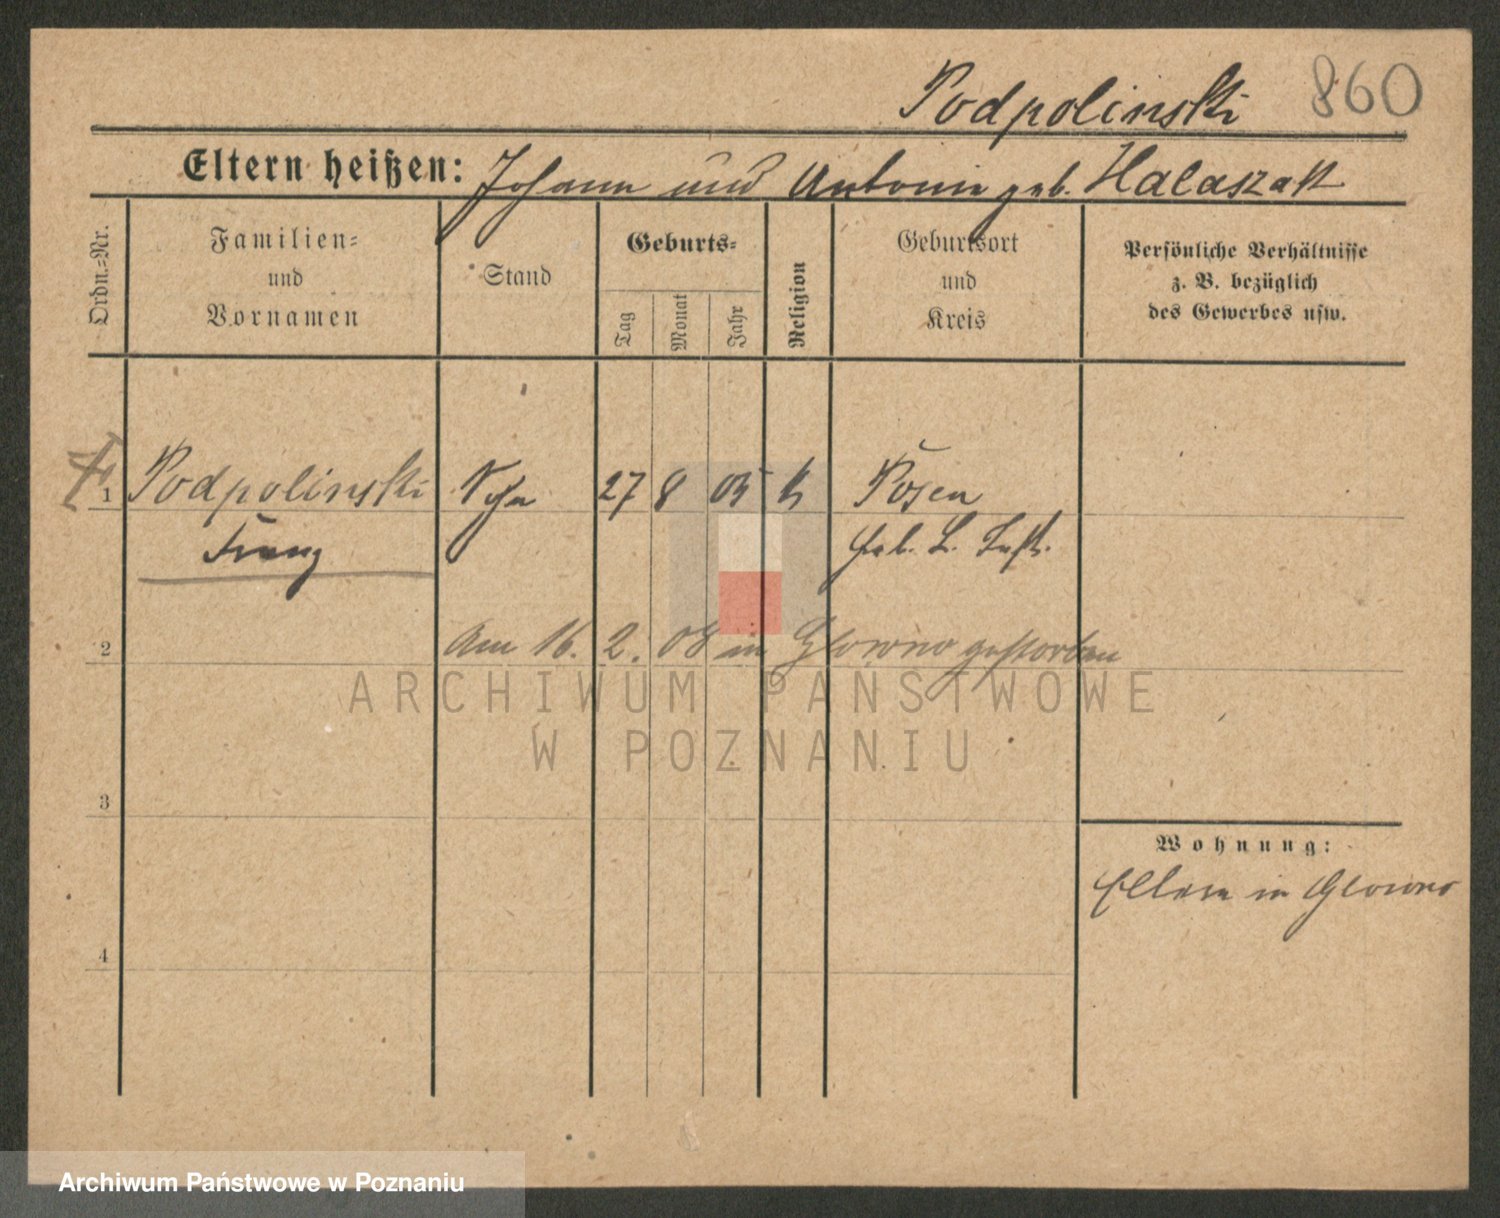 Podpolinski 860
Eltern heißen: Johann und Antonie geb. Halaszak
Ordn.=Nr.
Familien=
und
Vornamen
Stand
Geburts=
Tag
Monat
Jahr
Religion
Geburtsort
und
Kreis
Persönliche Verhältnisse
z. B. bezüglich
des Gewerbes usw.
1 Podpolinski 27 8 05 k Posen
Franz
2 Am 16. 2. 08 in Glowno gestorben
ARCHIWUM PAŃSTWOWE
W POZNANIU
3
Wohnung:
Eltern in Glowno
4
Archiwum Państwowe w Poznaniu